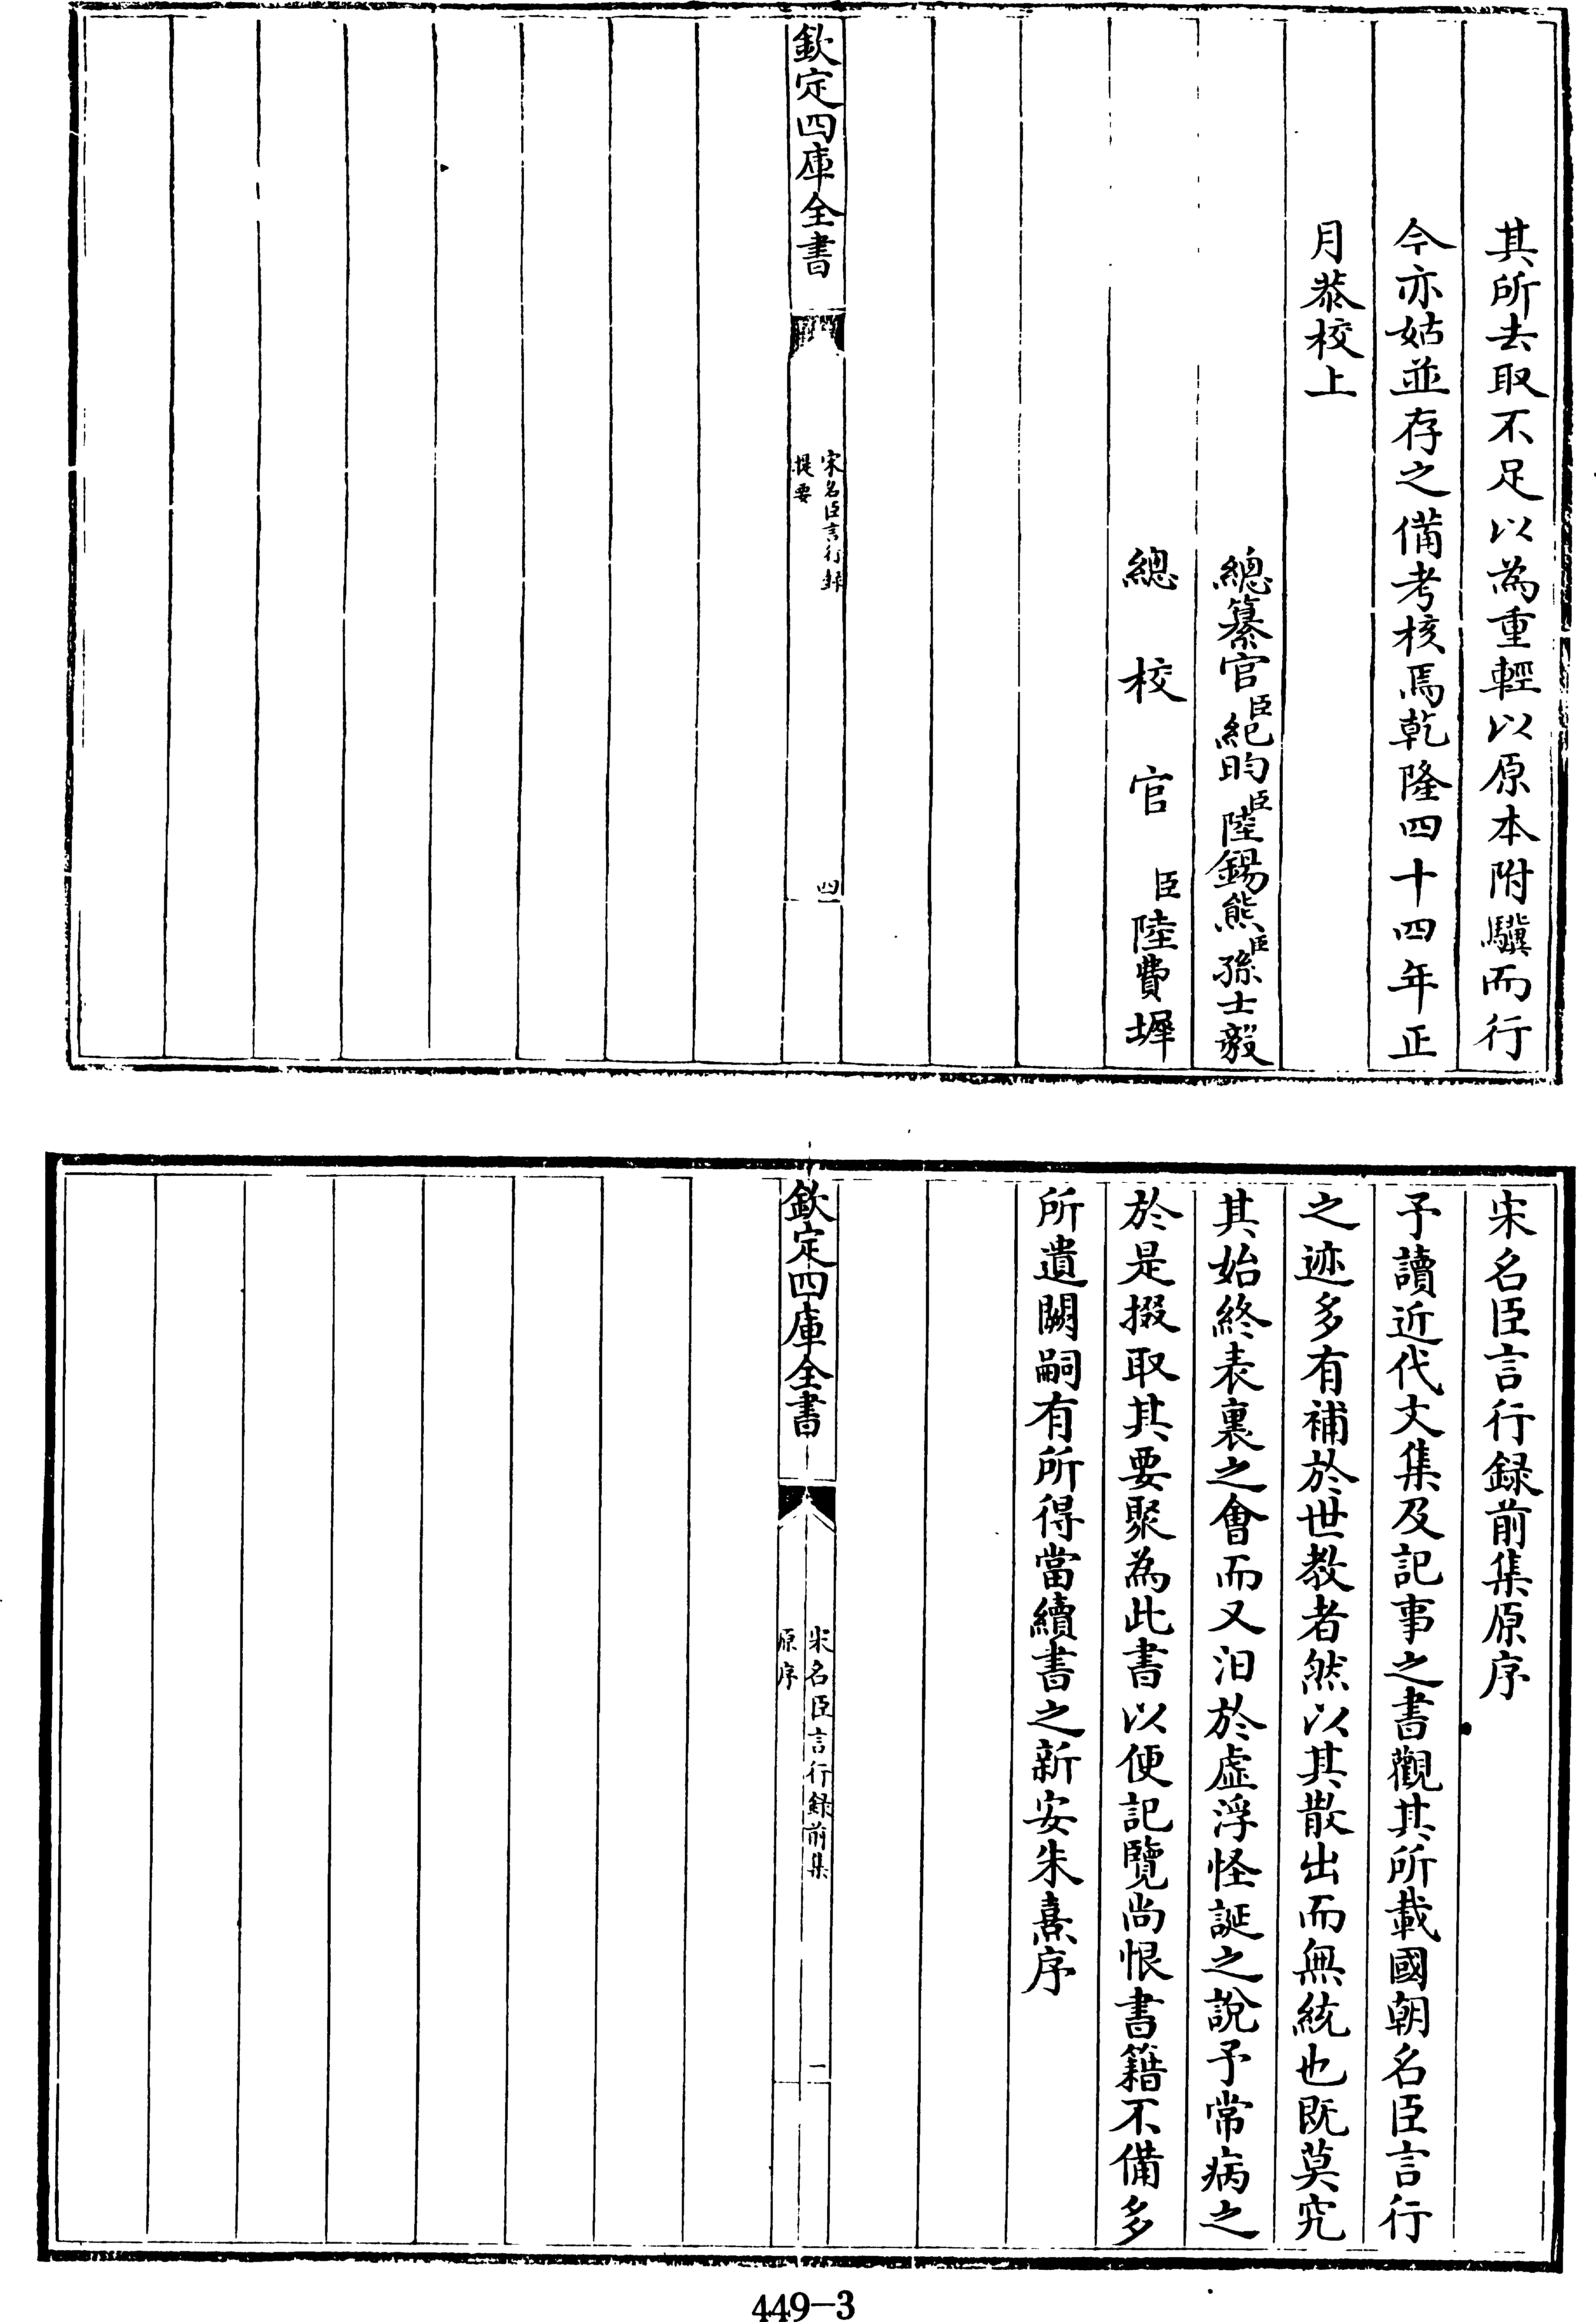 其所去取不足以為重輕以原本附驥而行
今亦姑並存之備考核焉乾隆四十四年正
月恭校上
總纂官臣紀昀臣陸錫熊臣孫士毅
總校官臣陸費墀
欽定四庫全書
宋名臣言行録
提要
四
宋名臣言行録前集原序
予讀近代文集及記事之書觀其所載國朝名臣言行
之迹多有補於世教者然以其散出而無統也既莫究
其始終表裏之會而又汩於虛浮怪誕之說予常病之
於是掇取其要聚為此書以便記覽尚恨書籍不備多
所遺闕嗣有所得當續書之新安朱熹序
欽定四庫全書
宋名臣言行録前集
原序
一
449-3